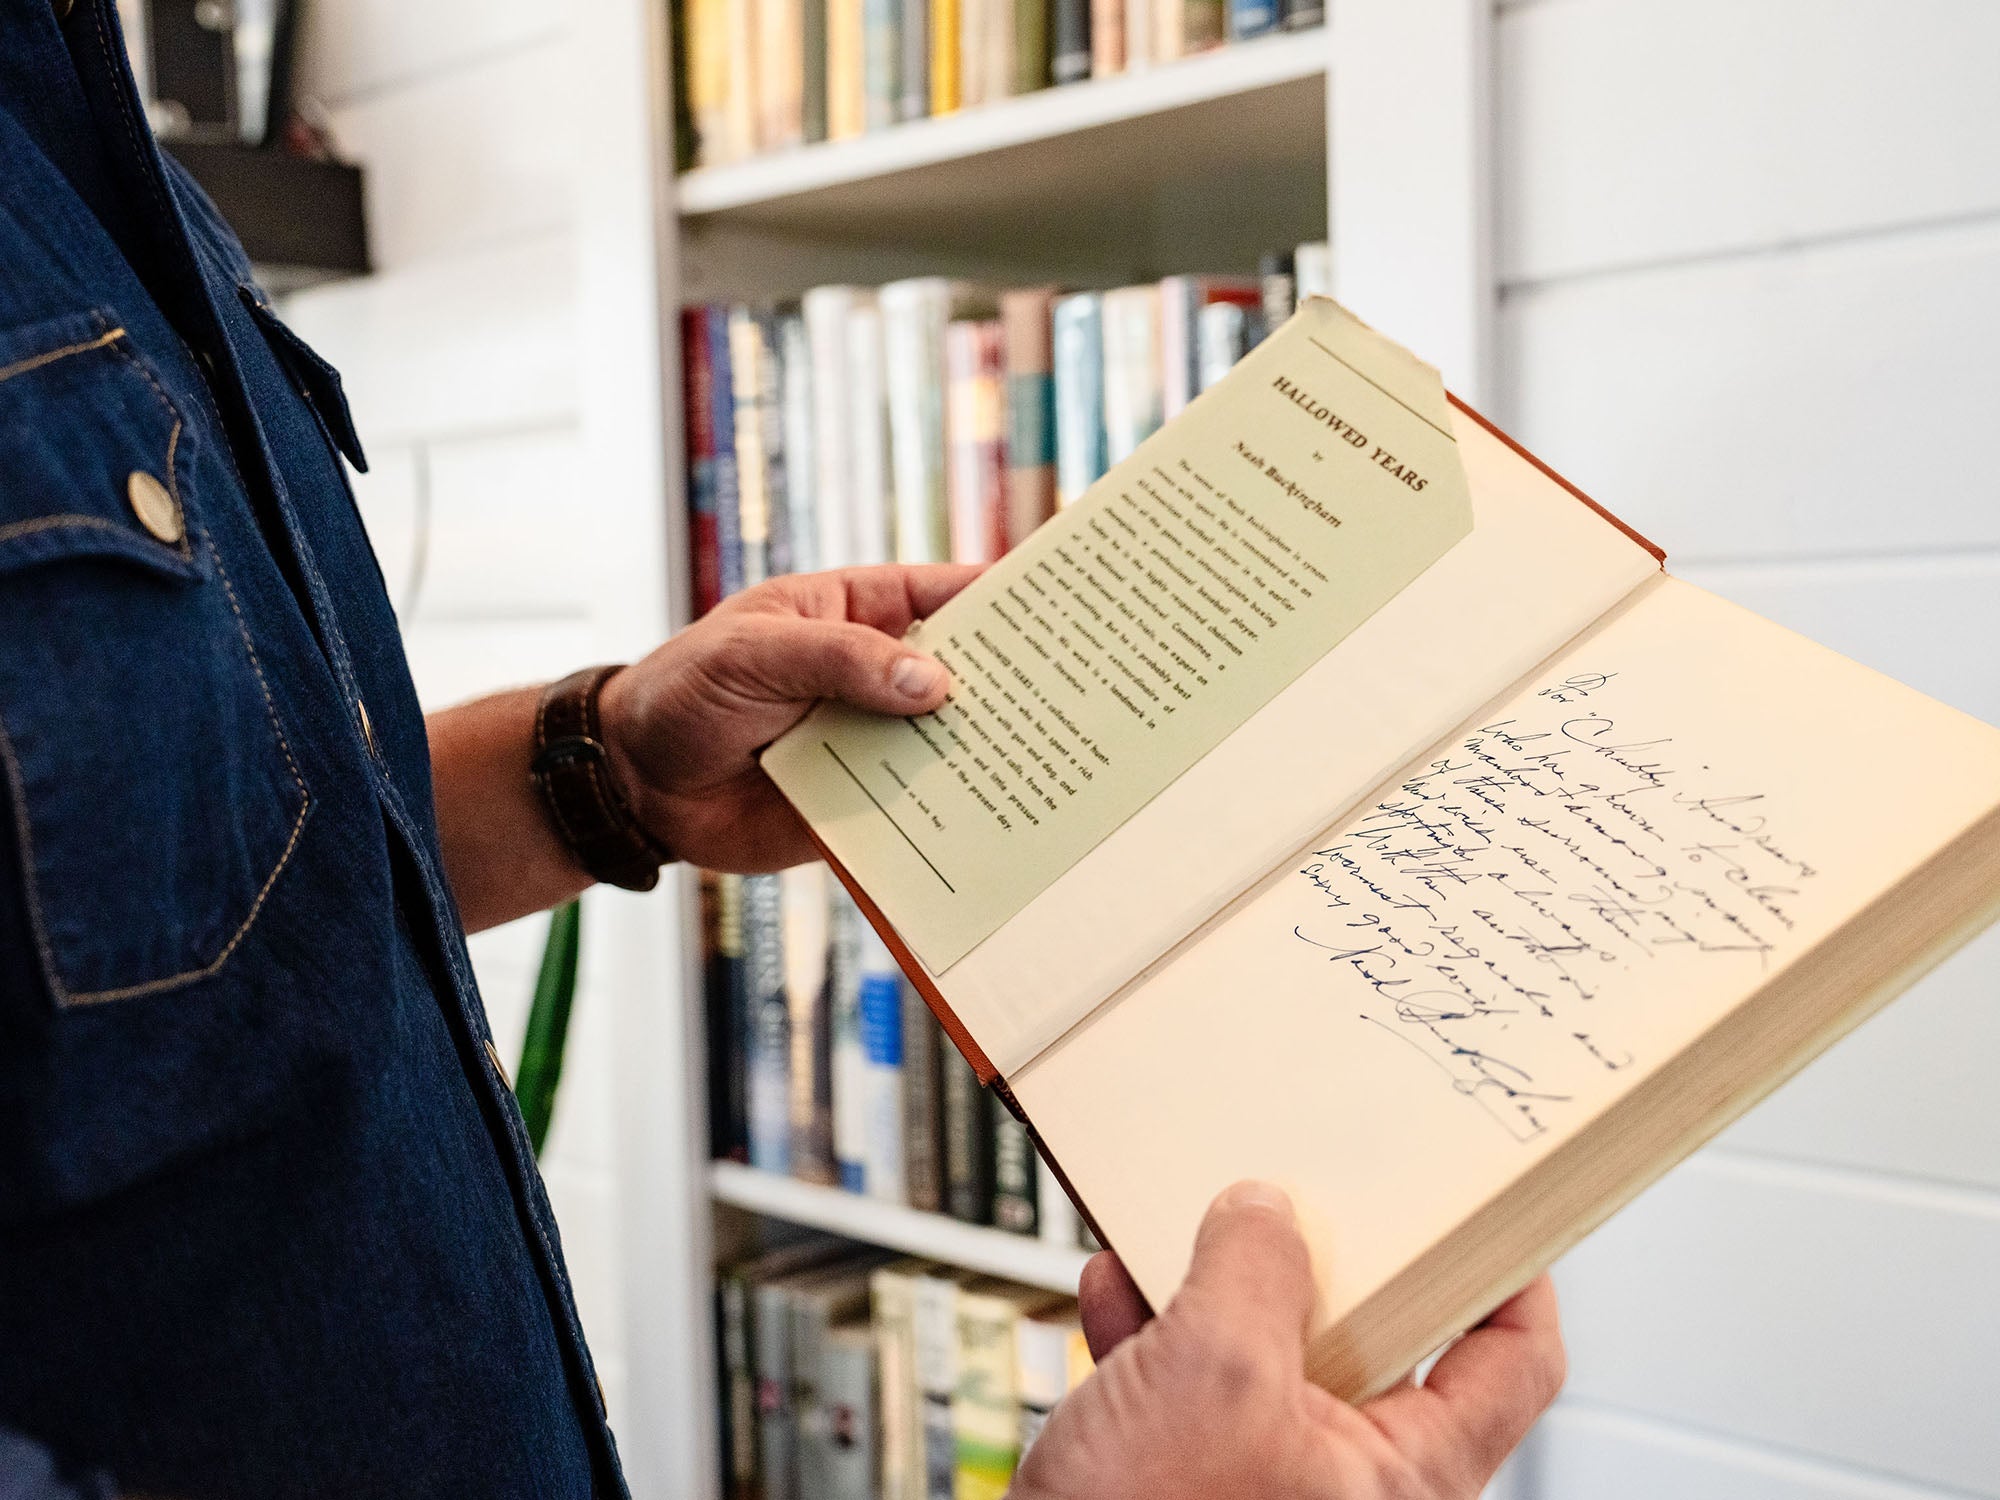 HALLOWED YEARS
by
Nash Buckingham
The name of Nash Buckingham is synon-
ymous with sport. He is remembered as an
All-American football player in the earlier
days of the game, an intercollegiate boxing
champion, a professional baseball player.
Today he is the highly respected chairman
of a National Waterfowl Committee, a
judge at National Field Trials, an expert on
guns and shooting. But he is probably best
known as a raconteur extraordinaire of
hunting yarns. His work is a landmark in
American outdoor literature.
HALLOWED YEARS is a collection of hunt-
ing stories from one who has spent a rich
lifetime in the field with gun and dog, and
with decoys and calls, from the
surplus and little pressure
complications of the present day.
(Continued on back flap)
For "Chubby" Andrews
who has grown to clean
manhood among
of these surroundings
and will use them
sportingly always.
With the author's
warmest regards and
very good wish.
Nash Buckingham